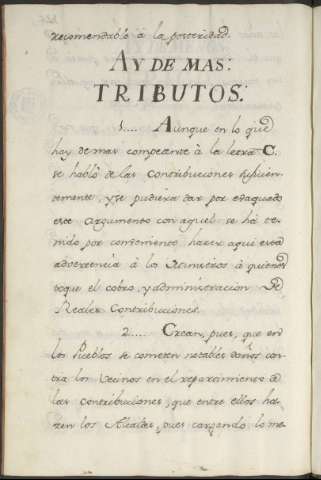 recomendable à la posteridad.
AY DE MAS:
TRIBUTOS:
1.... Aunque en lo que
hay de mas competente à la letra C.
se habló de las contribuciones suficien-
temente, y se pudiera dar por evaquado
este argumento con aquel se há te-
nido por conveniente hazer aquí esta
advertencia à los Ministros à quienes
toque el cobro, y administracion de
Reales Contribuciones.
2.... Crean, pues, que en
los Pueblos se cometen notables daños con-
tra los vecinos en el repartimiento de
las contribuciones, que entre ellos ha-
zen los Alcaldes, pues cargando lo me-